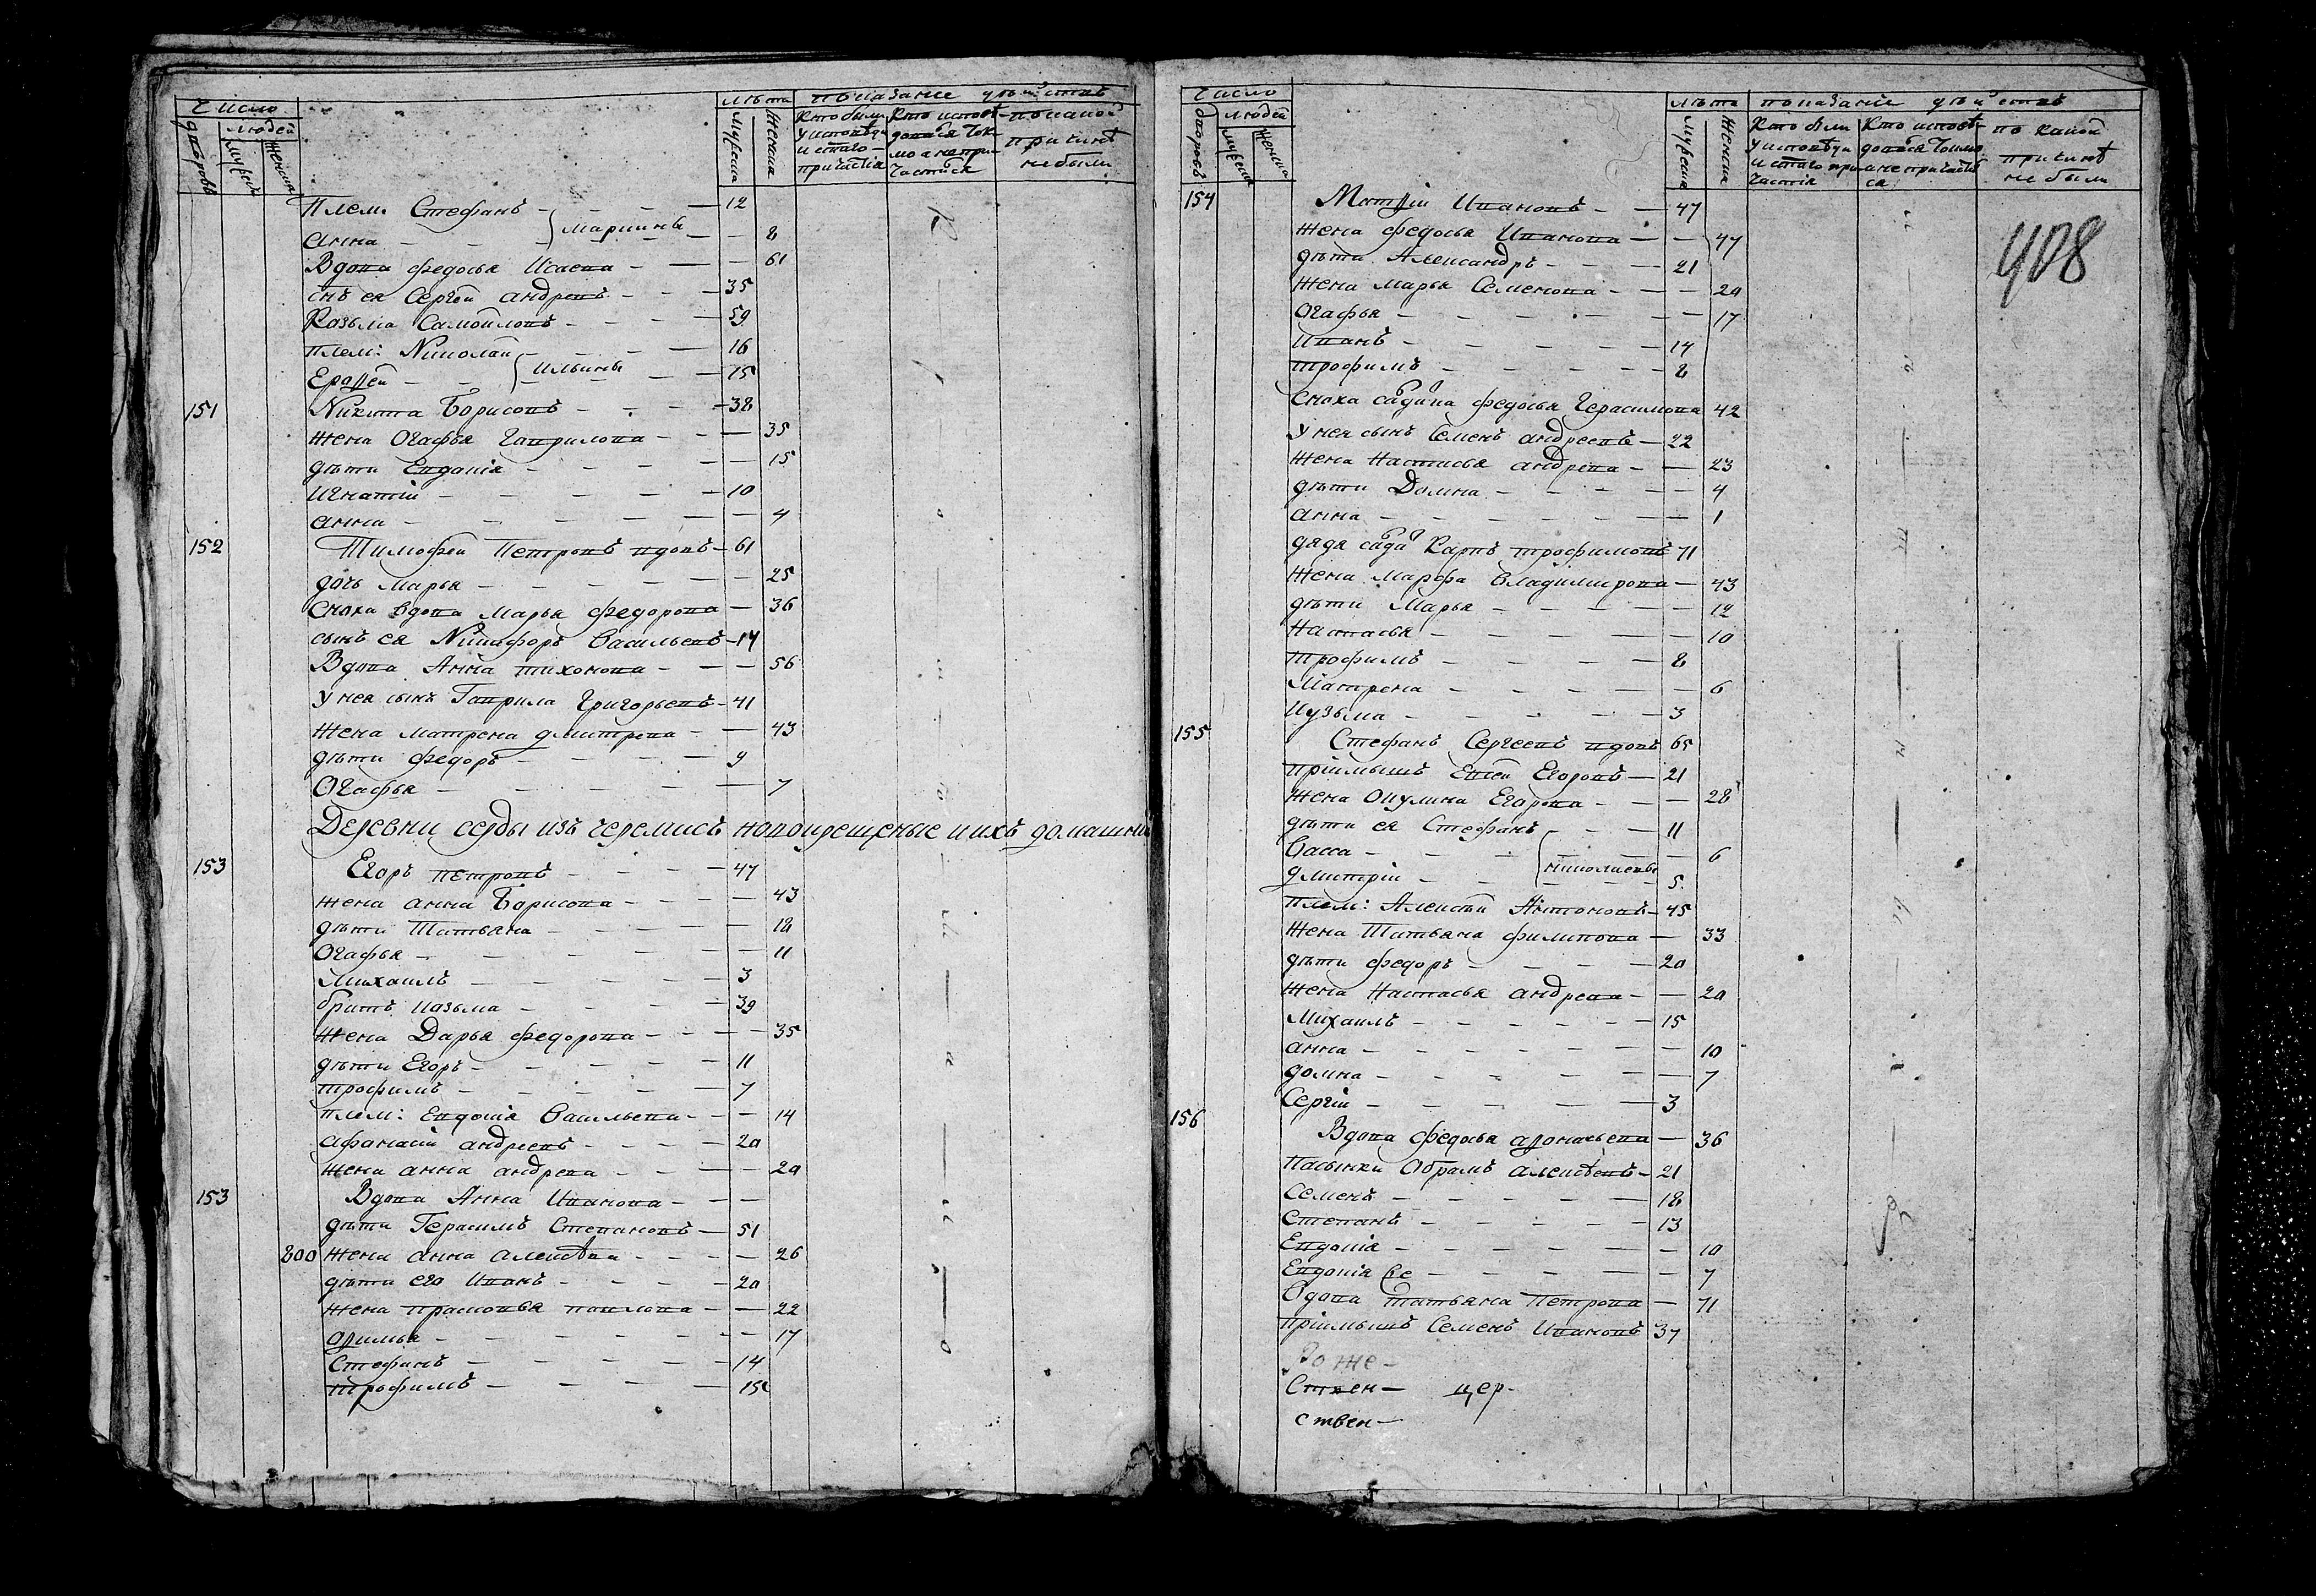 Число
дворовъ
людей
мужеска
женска
лѣта
мужеска
женска
показание дѣйства
Кто были у исповѣди и стаго причастія
Кто исповѣдовася ток-мо а не при-частися
по какой причинѣ не были
Плем: Стефанъ 12
Анна } Маркины 8
Вдова Федосья Исаева 61
снъ ея Сергей Андревъ 35
Козьма Самойловъ 59
плем: Николай 16
Ерофей } Ильины 15
151 Никита Борисовъ 38
жена Огафья Гаврилова 35
дѣти Евдокія 15
Игнатій 10
Анна 4
152 Тимофей Петровъ вдовъ 61
дочь Марья 25
Сноха вдова Марья Федорова 36
сынъ ея Никифоръ Васильевъ 14
Вдова Анна Тихонова 56
У нея сынъ Гаврила Григорьевъ 41
жена Матрена Дмитрева 43
дѣти Федоръ 9
Огафья 7
Деревни Серды изъ черемисъ новокрещеные и ихъ домашнии
153 Егоръ Петровъ 47
жена Анна Борисова 43
дѣти Татьяна 18
Огафья 11
Михаилъ 3
братъ Козьма 39
жена Дарья Федорова 35
дѣти Егоръ 11
Трофимъ 7
плем: Евдокія Васильева 14
Афанасій Андреевъ 20
жена Анна Андрева 20
153 Вдова Анна Иванова
дѣти Герасимъ Степановъ 51
800 жена Анна Алексѣева 26
дѣти его Иванъ 20
жена Прасковья Павлова 22
17
Стефанъ 14
Трофимъ 15
Число
дворовъ
людей
мужеска
женска
лѣта
мужеска
женска
показаніе дѣйства
Кто были у исповѣди и стаго при-частія
Кто исповѣ-довася токмо а не причасти-ся
по какой причинѣ не были
408
154 Матфій Ивановъ 47
жена Федосья Иванова 47
дѣти Александръ 21
жена Марья Семенова 20
Огафья 17
Иванъ 14
Трофимъ 8
Сноха вдова Федосья Герасимова 42
У нея сынъ Семенъ Андреевъ 22
жена Настасья Андрева 23
дѣти Домна 4
Анна 1
дядя Карпъ Трофимовъ 71
жена Марфа Владимирова 43
дѣти Марья 12
Настасья 10
Трофимъ 8
Матрена 6
Кузьма 3
155 Стефанъ Сергеевъ вдовъ 65
пріимышъ Егоровъ 21
жена Окулина Егорова 28
дѣти ея Стефанъ 11
Васса 6
Дмитрій } Николаевы 5
плем: Алексѣй Антоновъ 45
жена Татьяна Филипова 33
дѣти Федоръ 20
жена Настасья Андрева 20
Михаилъ 15
Анна 10
Домна 7
Сергій 3
156 Вдова Федосья Афонасьева 36
Пасынки Обрамъ Алексѣевъ 21
Семенъ 18
Степанъ 13
Евдокія 10
Евдокія 7
Вдова Татьяна Петрова 71
пріимышъ Семенъ Ивановъ 37
Роже-
Ствен- цер-
ствен-